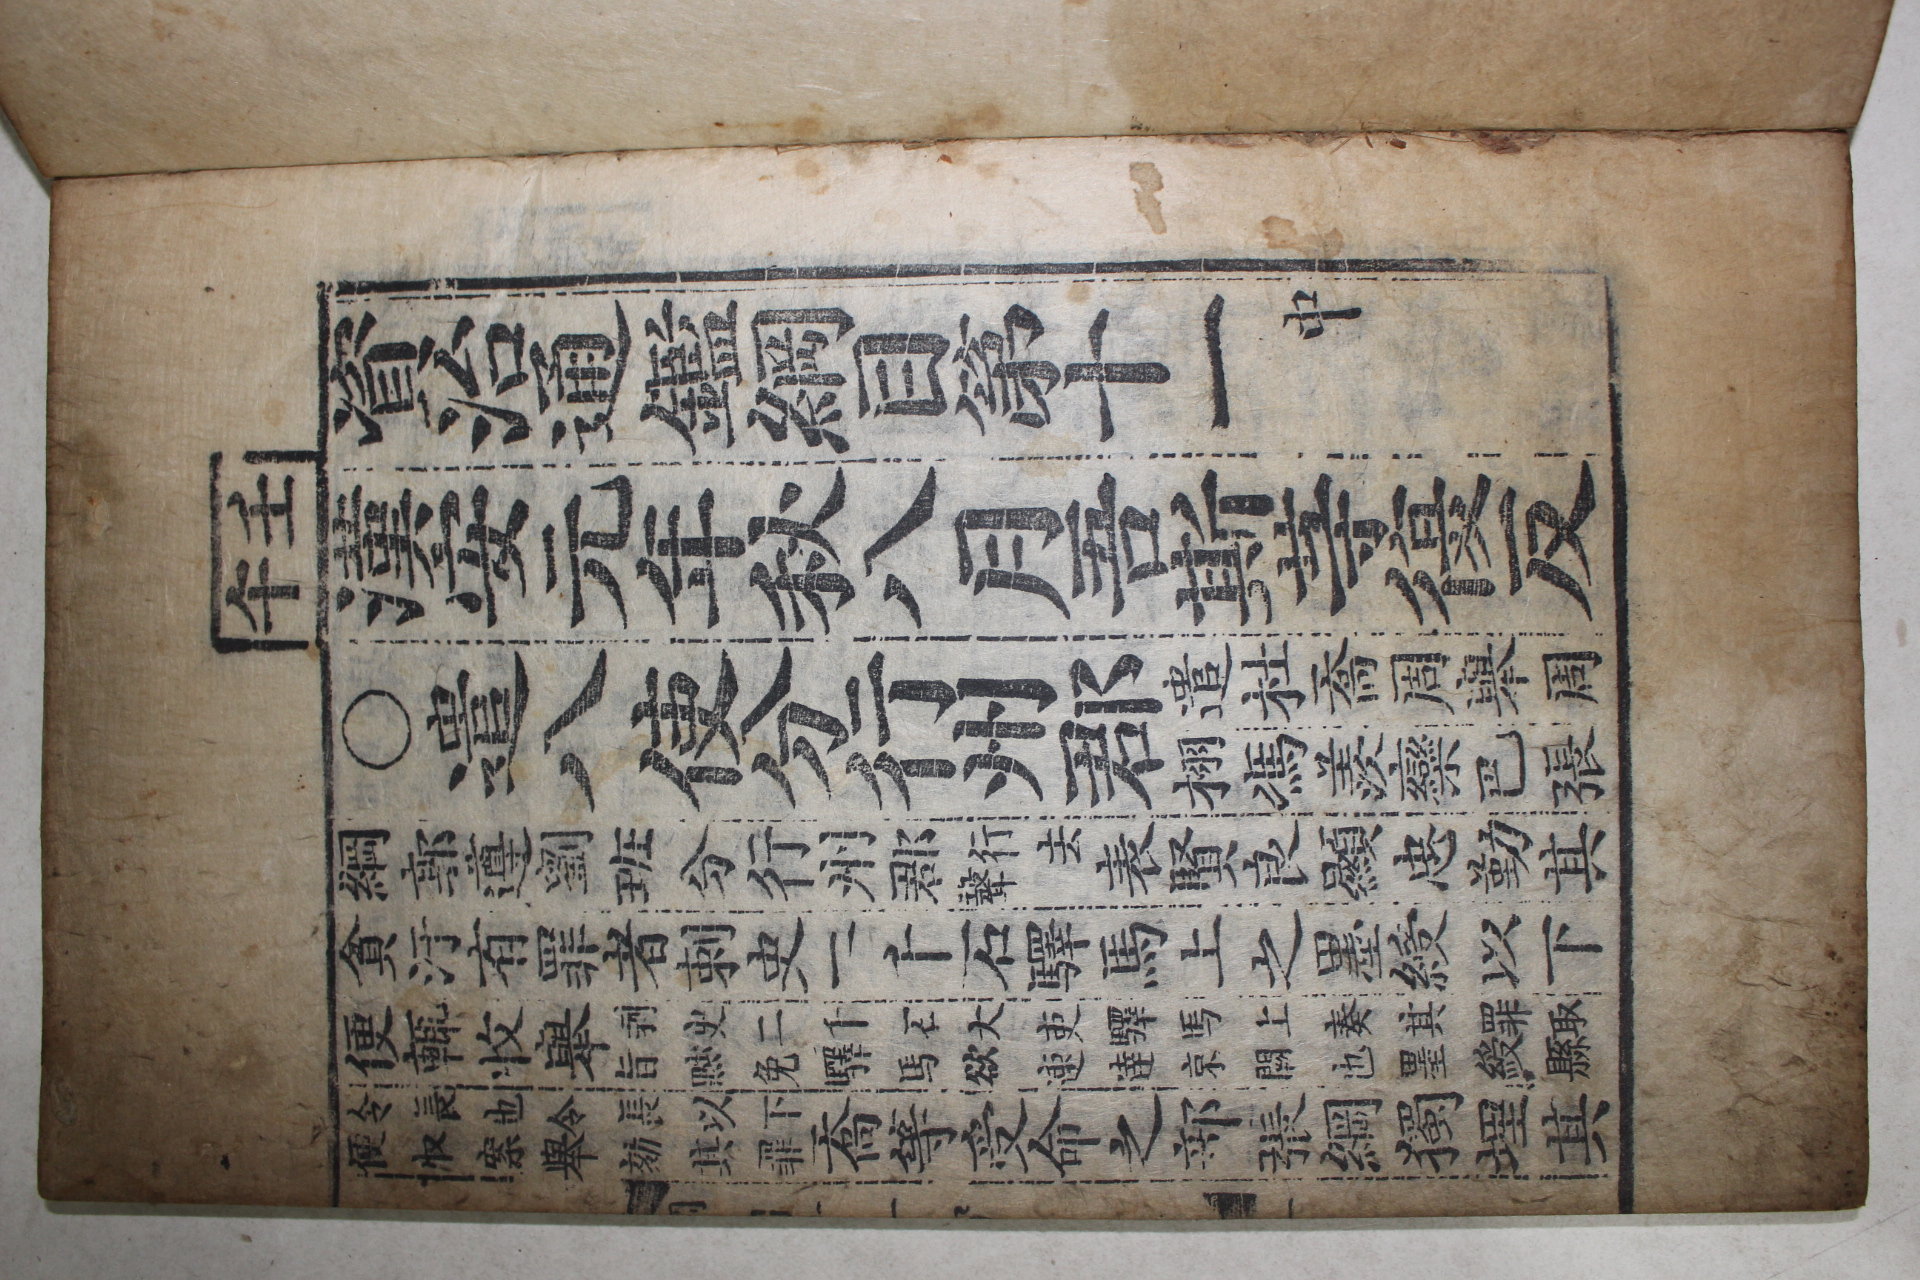 壬午
資治通鑑綱目第十一 中
漢安元年秋八月吾斯等復反
○遣八使分行州郡 遣杜喬周舉周
栩馮羨欒巴張
綱郭遵劉班分行州郡 行去
聲 表賢良顯忠勤其
貪汙有罪者刺史二千石驛馬上之墨綬以下
便輒收舉 刺史二千石大吏驛馬上奏其罪取
旨黜免驛馬欲速達京闕也墨綬縣
令長也令長以下
便收案舉劾其罪 喬等受命之部張綱獨埋其